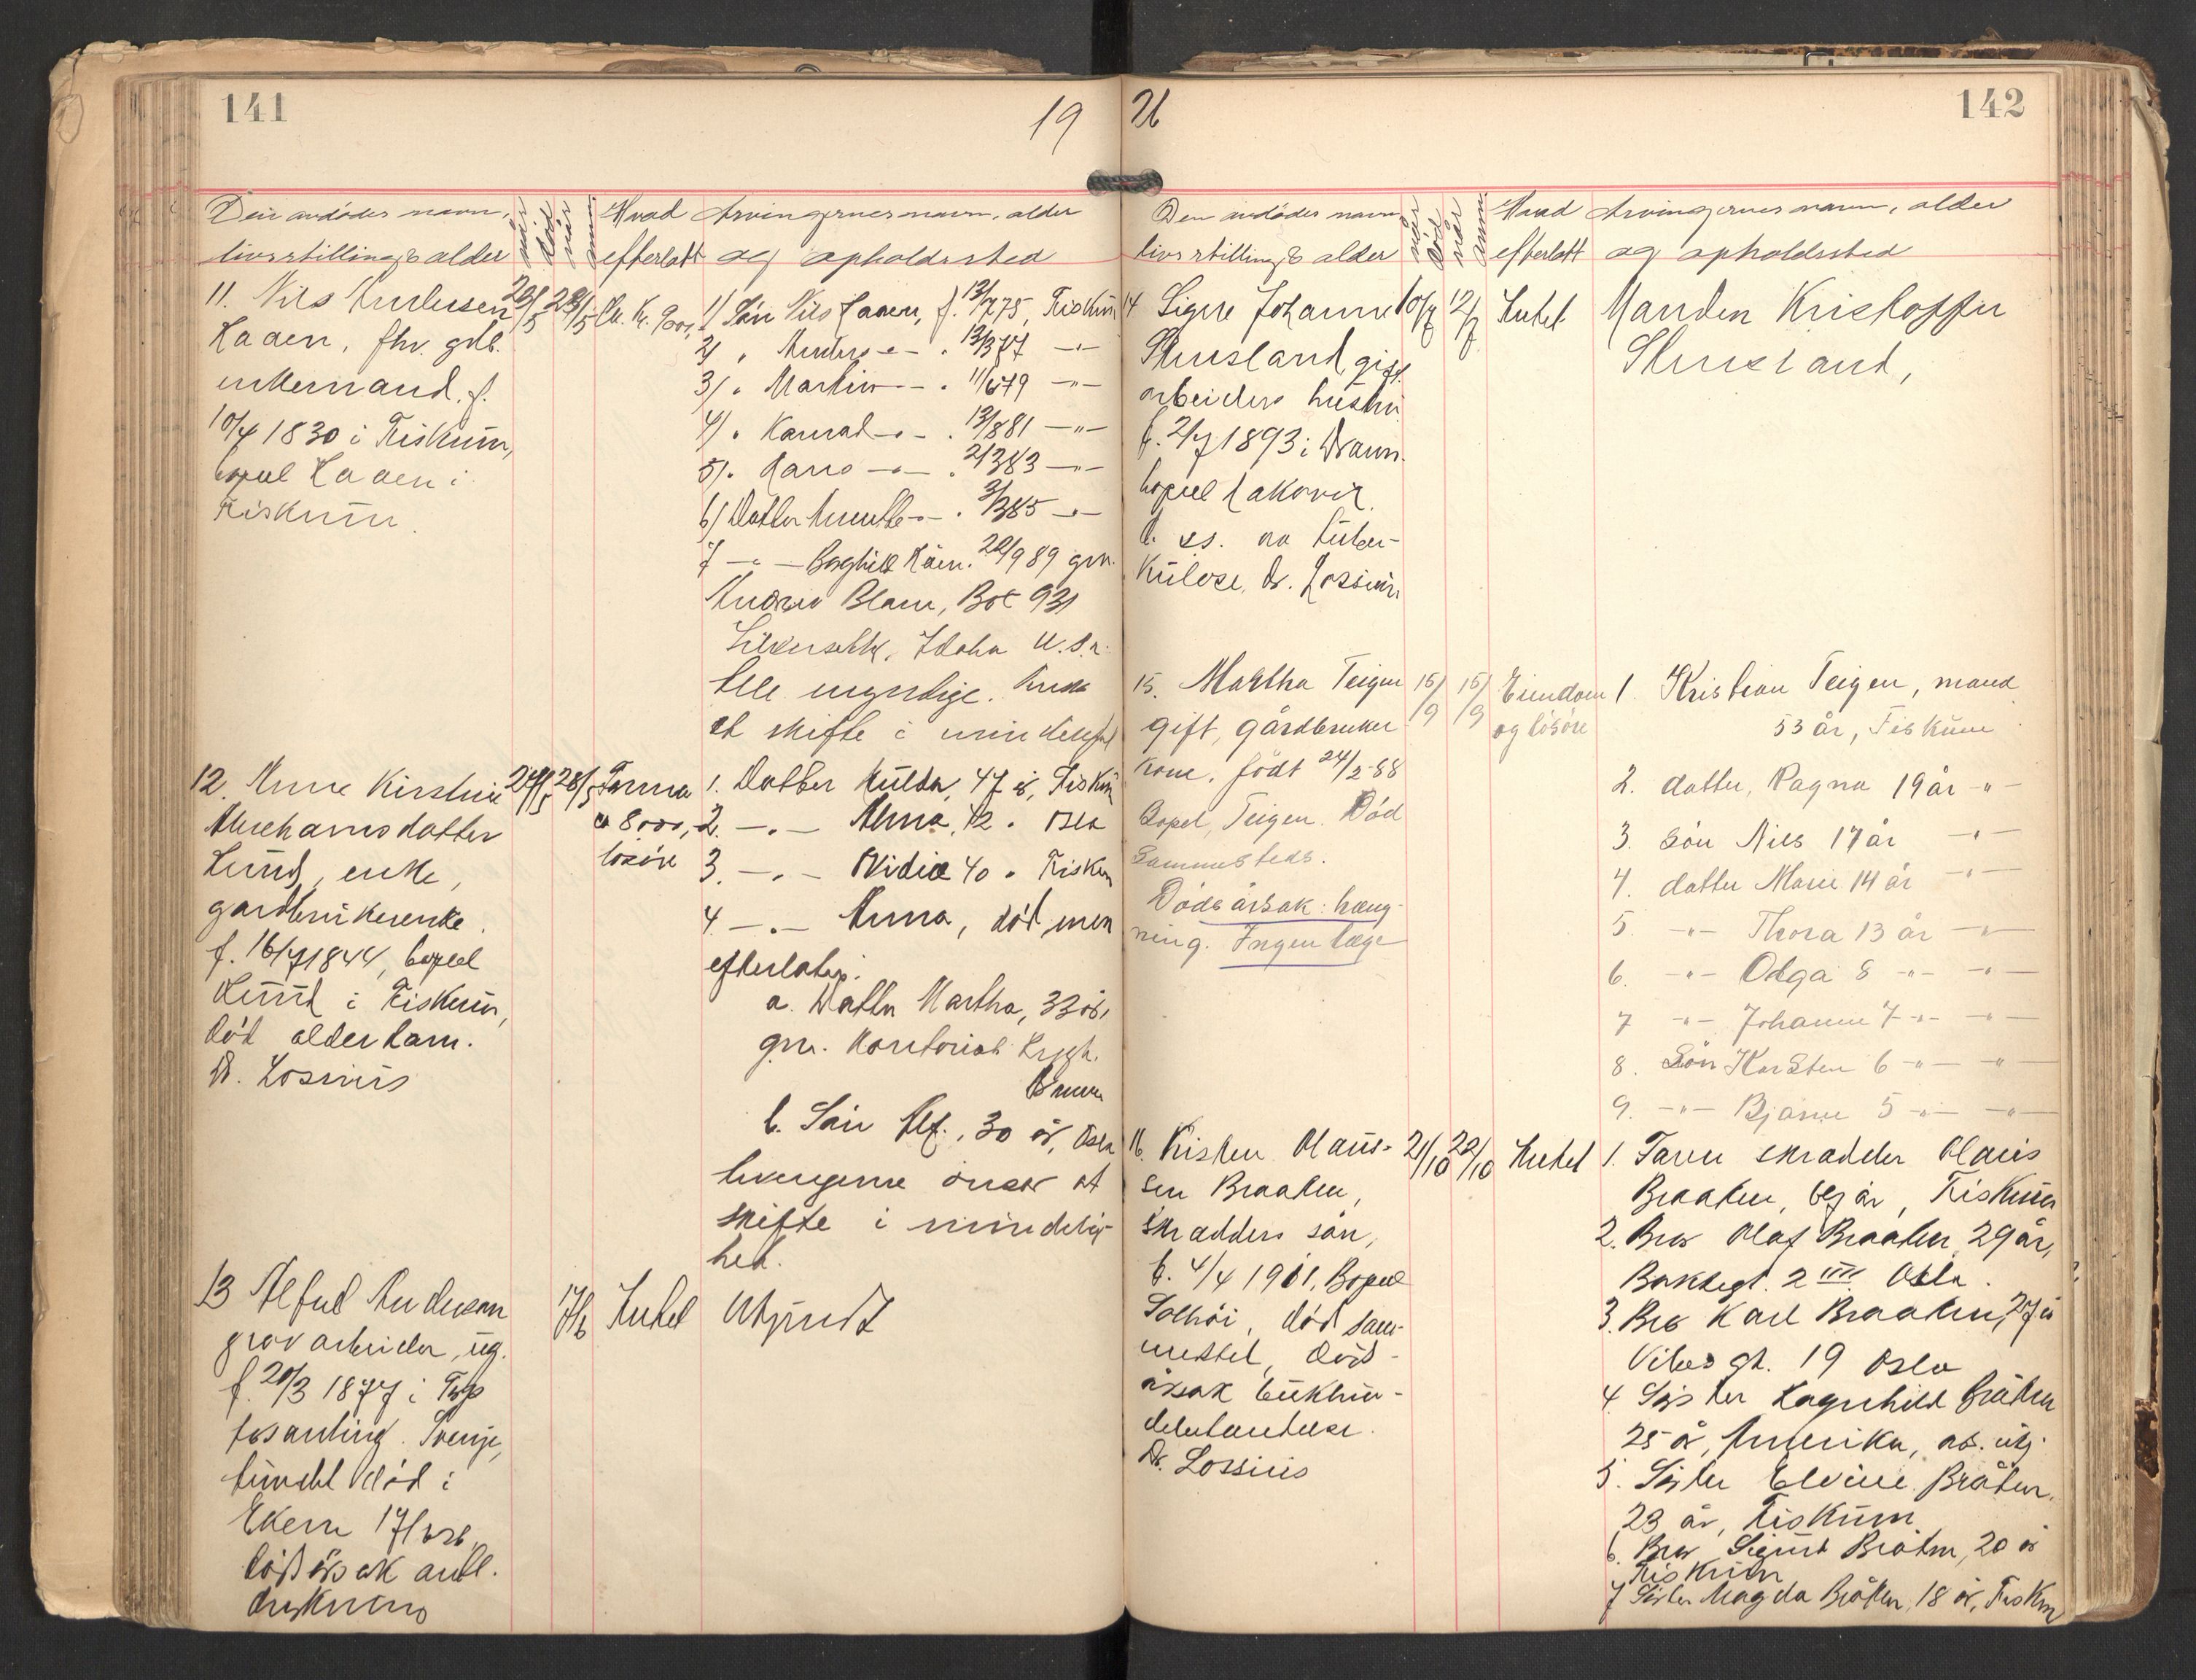 141
19
Den avdødes navn,
livsstilling & alder
når død
når anm.
Hvad
efterlatt
Arvingernes navn, alder
og opholdssted
11. Nils Andersen
Kaaen, fhv. gdb.
enkemand, f.
10/4 1830 i Fiskum,
bopel Kaaen i
Fiskum.
1) Søn Nils Kaaen, f. 13/7 75, Fiskum
2) " Anders -"- " 13/3 77 -"-
3) " Martin -"- " 11/6 79 -"-
4) " Konrad -"- " 13/8 81 -"-
5) " Hans -"- " 2/3 83 -"-
6) Datter -"- " 3/3 85 -"-
7 -"- Borghild Kåen " 20/9 89 gm.
Blaue, Box 931
Idaho U.S.A.
Alle myndige. Ønsker
at skifte i mindelighet
12. Anne Kirstine
Abrahamsdatter
Lund, enke,
gardbrukerenke.
f. 16/7 1844, bopel
Lund i Fiskum,
død alderdom.
Dr. Lossius
24/5
28/5
8000,
løsøre
1. Datter Hulda, 47 år, Fiskum
2. -"- Alma, 42 " Oslo
3. -"- Ovidia 40 " Fiskum
4. -"- Anna, død, men
efterlater:
a. Datter Martha, 33 år,
gm. kontorist
b. Søn Alf, 30 år, Oslo
Arvingerne ønsker at
skifte i mindelig-
het.
13 Alfred Andersson
grovarbeider, ug.
f. 20/3 1877 i
Sverige,
fundet død i
Ekern 17/6 26,
dødsårsak antl.
drukning
17/6
Intet
Ukjendt
26
142
Den avdødes navn
livsstilling & alder
når død
når anm.
Hvad
efterlatt
Arvingernes navn, alder
og opholdssted
14 Signe Johanne
Stensland, gift.
arbeiders hustru
f. 2/7 1893 i Dram.
bopel
d. av tuber-
kulose, Dr. Lossius
10/7
12/7
Intet
Manden Kristoffer
Stensland,
15. Martha Teigen
gift, gårdbruker
kone, født 24/2-88
Bopel, Teigen. Død
sammesteds.
Dødsårsak: hæng-
ning. Ingen læge
15/9
15/9
Eiendom
og løsøre
1. Kristian Teigen, mand
53 år, Fiskum
2. datter, Ragna 19 år -"-
3. søn Nils 17 år -"-
4. datter Marie 14 år -"-
5. -"- Thora 13 år -"-
6. -"- Olga 8 -"- -"-
7 -"- Johanne 7 -"- -"-
8. Søn Karsten 6 -"- -"-
9. -"- Bjarne 5 -"- -"-
16. Kristen Olaus-
sen Braaten,
skrædders søn,
f. 4/4 1911, Bopel
Solhøi, død sam-
mested, døds-
årsak bukhin-
debetændelse.
Dr. Lossius
21/10
22/10
Intet
1. Faren skrædder Olaus
Braaten, år, Fiskum
2. Bror Olaf Braaten 29 år,
2 III Oslo.
3. Bror Karl Braaten, 27 år
Vibes gt. 19 Oslo
4 Søster Ragnhild Bråten
25 år, Amerika,
5. Søster Elvine Bråten,
23 år, Fiskum
6. Bror Sigurd Bråten, 20 år
Fiskum
7 Søster Magda Bråten, 18 år, Fiskum